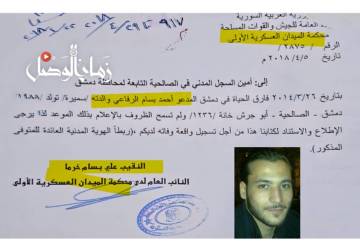 الجمهورية العربية السورية
القيادة العامة للجيش والقوات المسلحة
محكمة الميدان العسكرية الأولى
الرقم /٢٨٧٥/
تاريخ ٢٠١٨/٤/٥
زمان الوصل
٩١٧
إلى: أمين السجل المدني في الصالحية التابعة لمحافظة دمشق
بتاريخ ٢٠١٤/٣/٢٦ فارق الحياة في دمشق المدعو أحمد بسام الرفاعي والدته /سميرة/ تولد /١٩٨٨
دمشق - الصالحية - أبو جرش خانة /١٢٣٦/ ولم تسمح الظروف بالإعلام بذلك/ لذا يرجى
الإطلاع والاستناد لكتابنا هذا من أجل تسجيل واقعة وفاته لديكم ،(ربطاً الهوية المدنية العائدة للمتوفى
المذكور).
النقيب علي بسام خرما
النائب العام لدى محكمة الميدان العسكرية الأولى